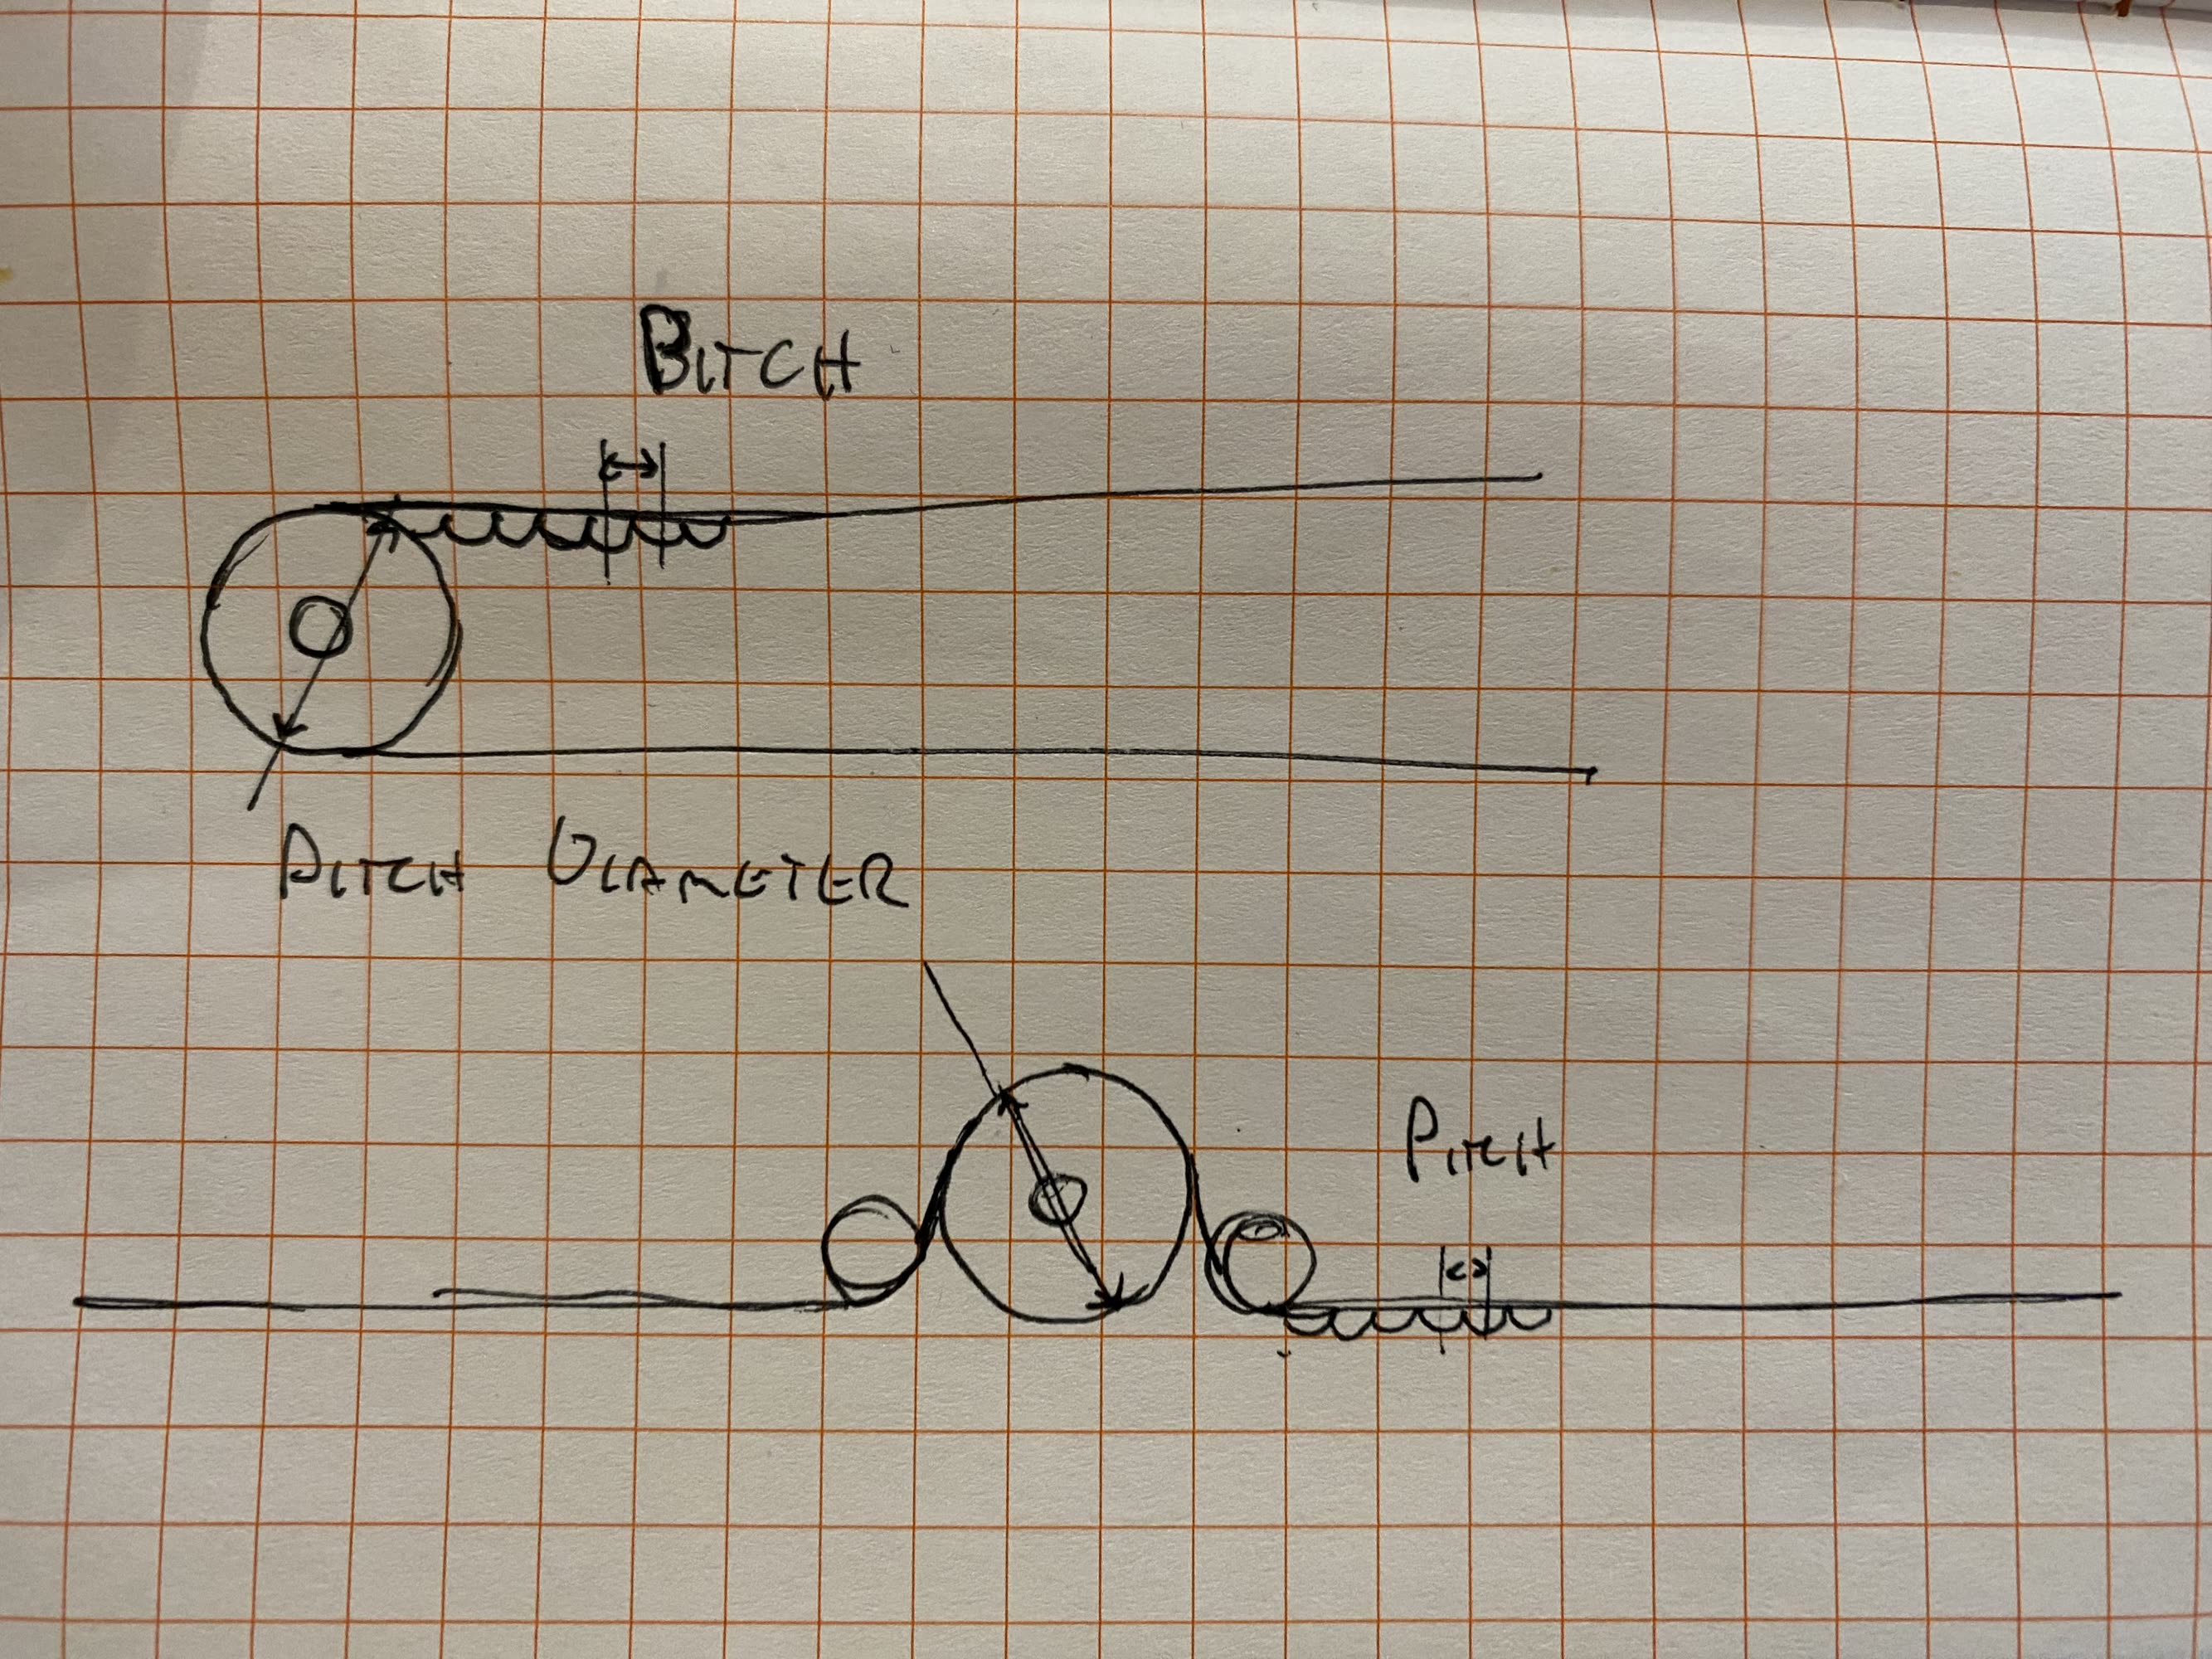 BITCH
PITCH DIAMETER
PITCH